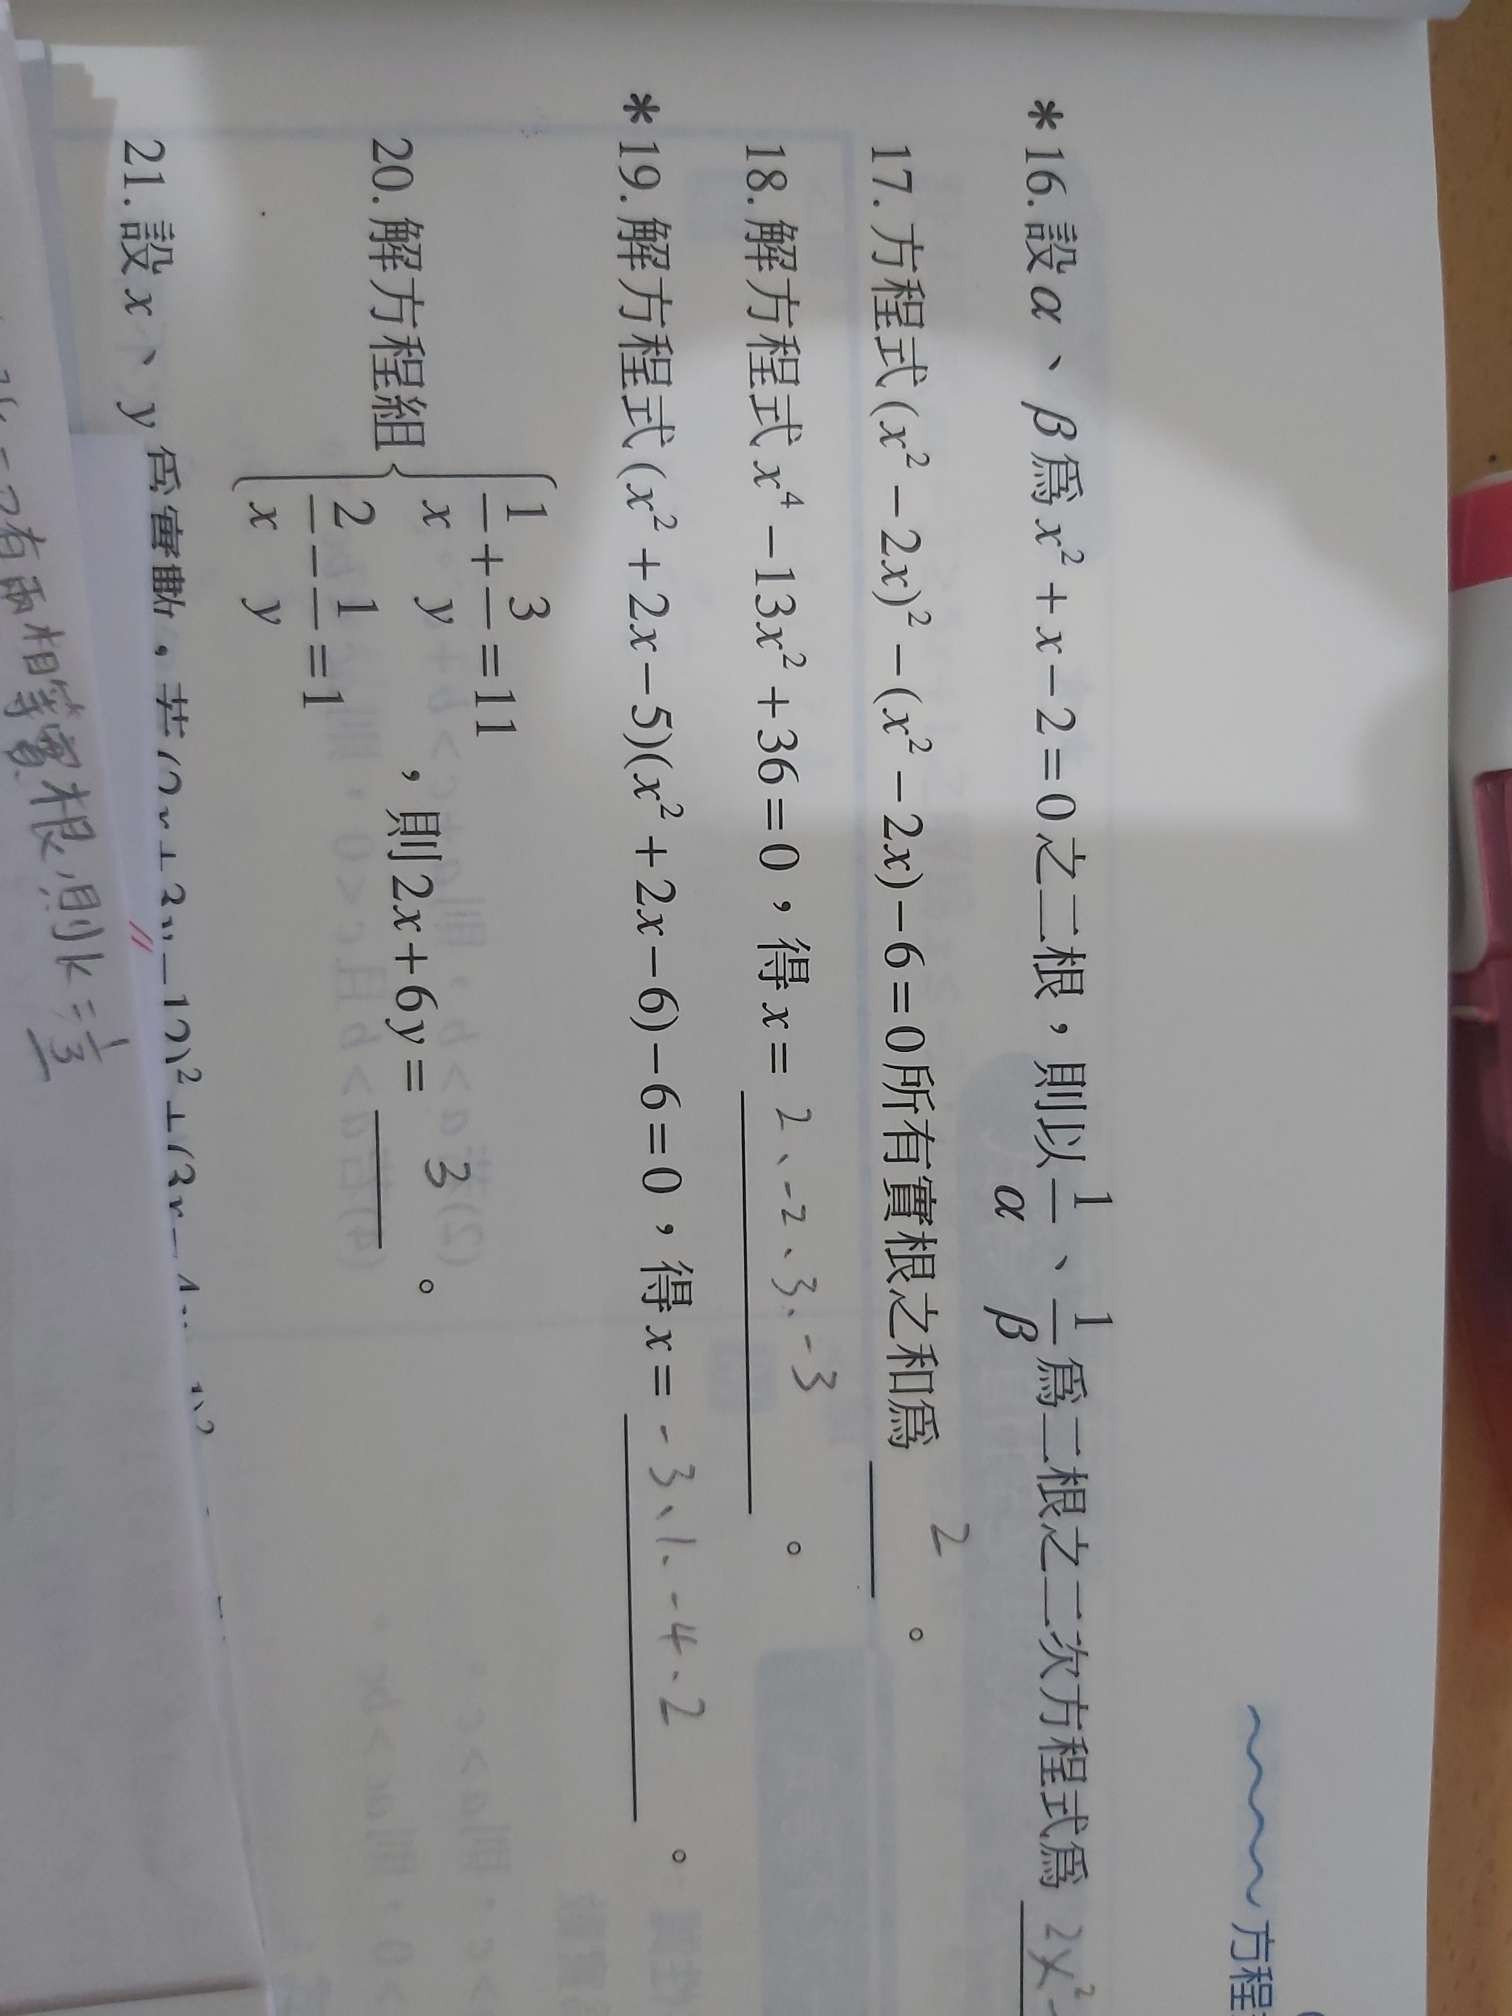 方程
*16.設α、β為x²+x-2=0之二根，則以1/α、1/β為二根之二次方程式為 2x²-
17.方程式(x²-2x)²-(x²-2x)-6=0所有實根之和為 2 。
18.解方程式x⁴-13x²+36=0，得x= 2、-2、3、-3 。
*19.解方程式(x²+2x-5)(x²+2x-6)-6=0，得x= -3、1、-4、2 。
20.解方程組{1/x+3/y=11
2/x-1/y=1 ，則2x+6y= 3 。
21.設x、y為實數，若(2x+3y-12)²+(3x-4
有兩相等實根，則k=1/3